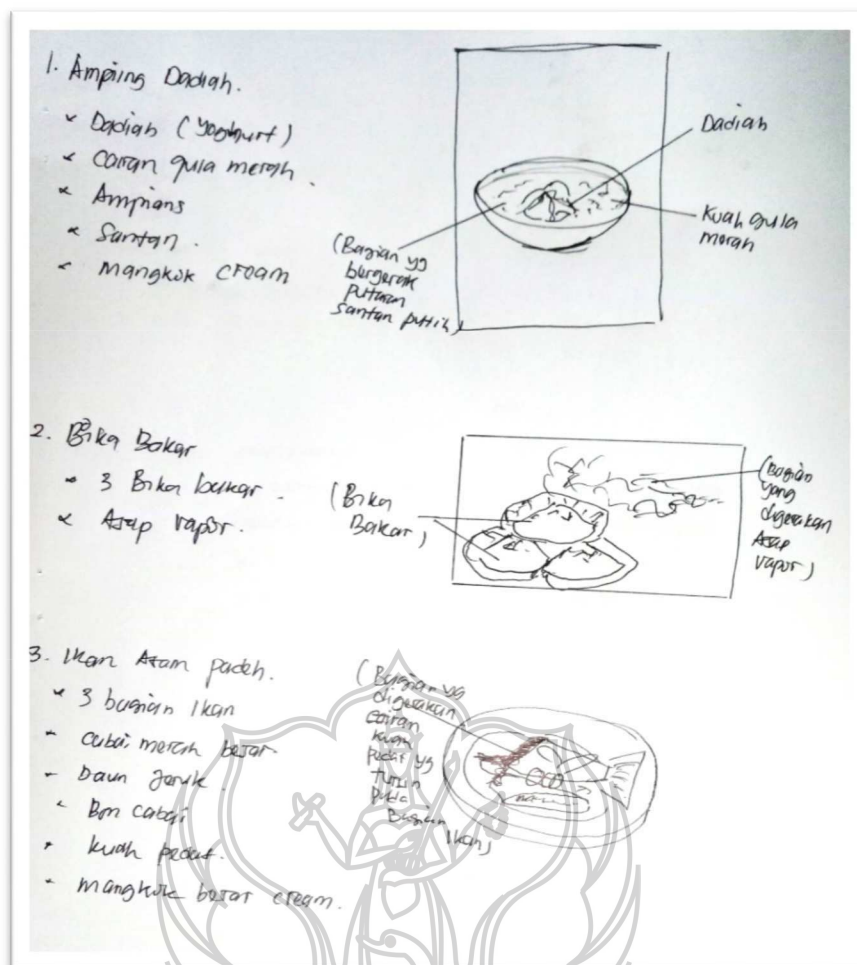 1. Ampiing Dadiah.
Dadiah (Yoghurt)
Cairan gula merah.
Ampians
Santan.
Mangkok cream
Dadiah
Kuah gula
merah
(Bagian yg
bergerak
Putaran
Santan putih)
2. Bika Bakar
3 Bika bakar.
Asap vapor.
(Bika
Bakar)
(Bagian
yang
digerakan
Asap
vapor)
3. Ikan Asam padeh.
3 bagian Ikan
Cabai merah besar
Daun Jeruk.
Biji cabai
kuah pedas.
mangkok besar cream.
(Bagian yg
digerakan
cairan
kuah
pedas yg
turun
pada
Bagian
Ikan)